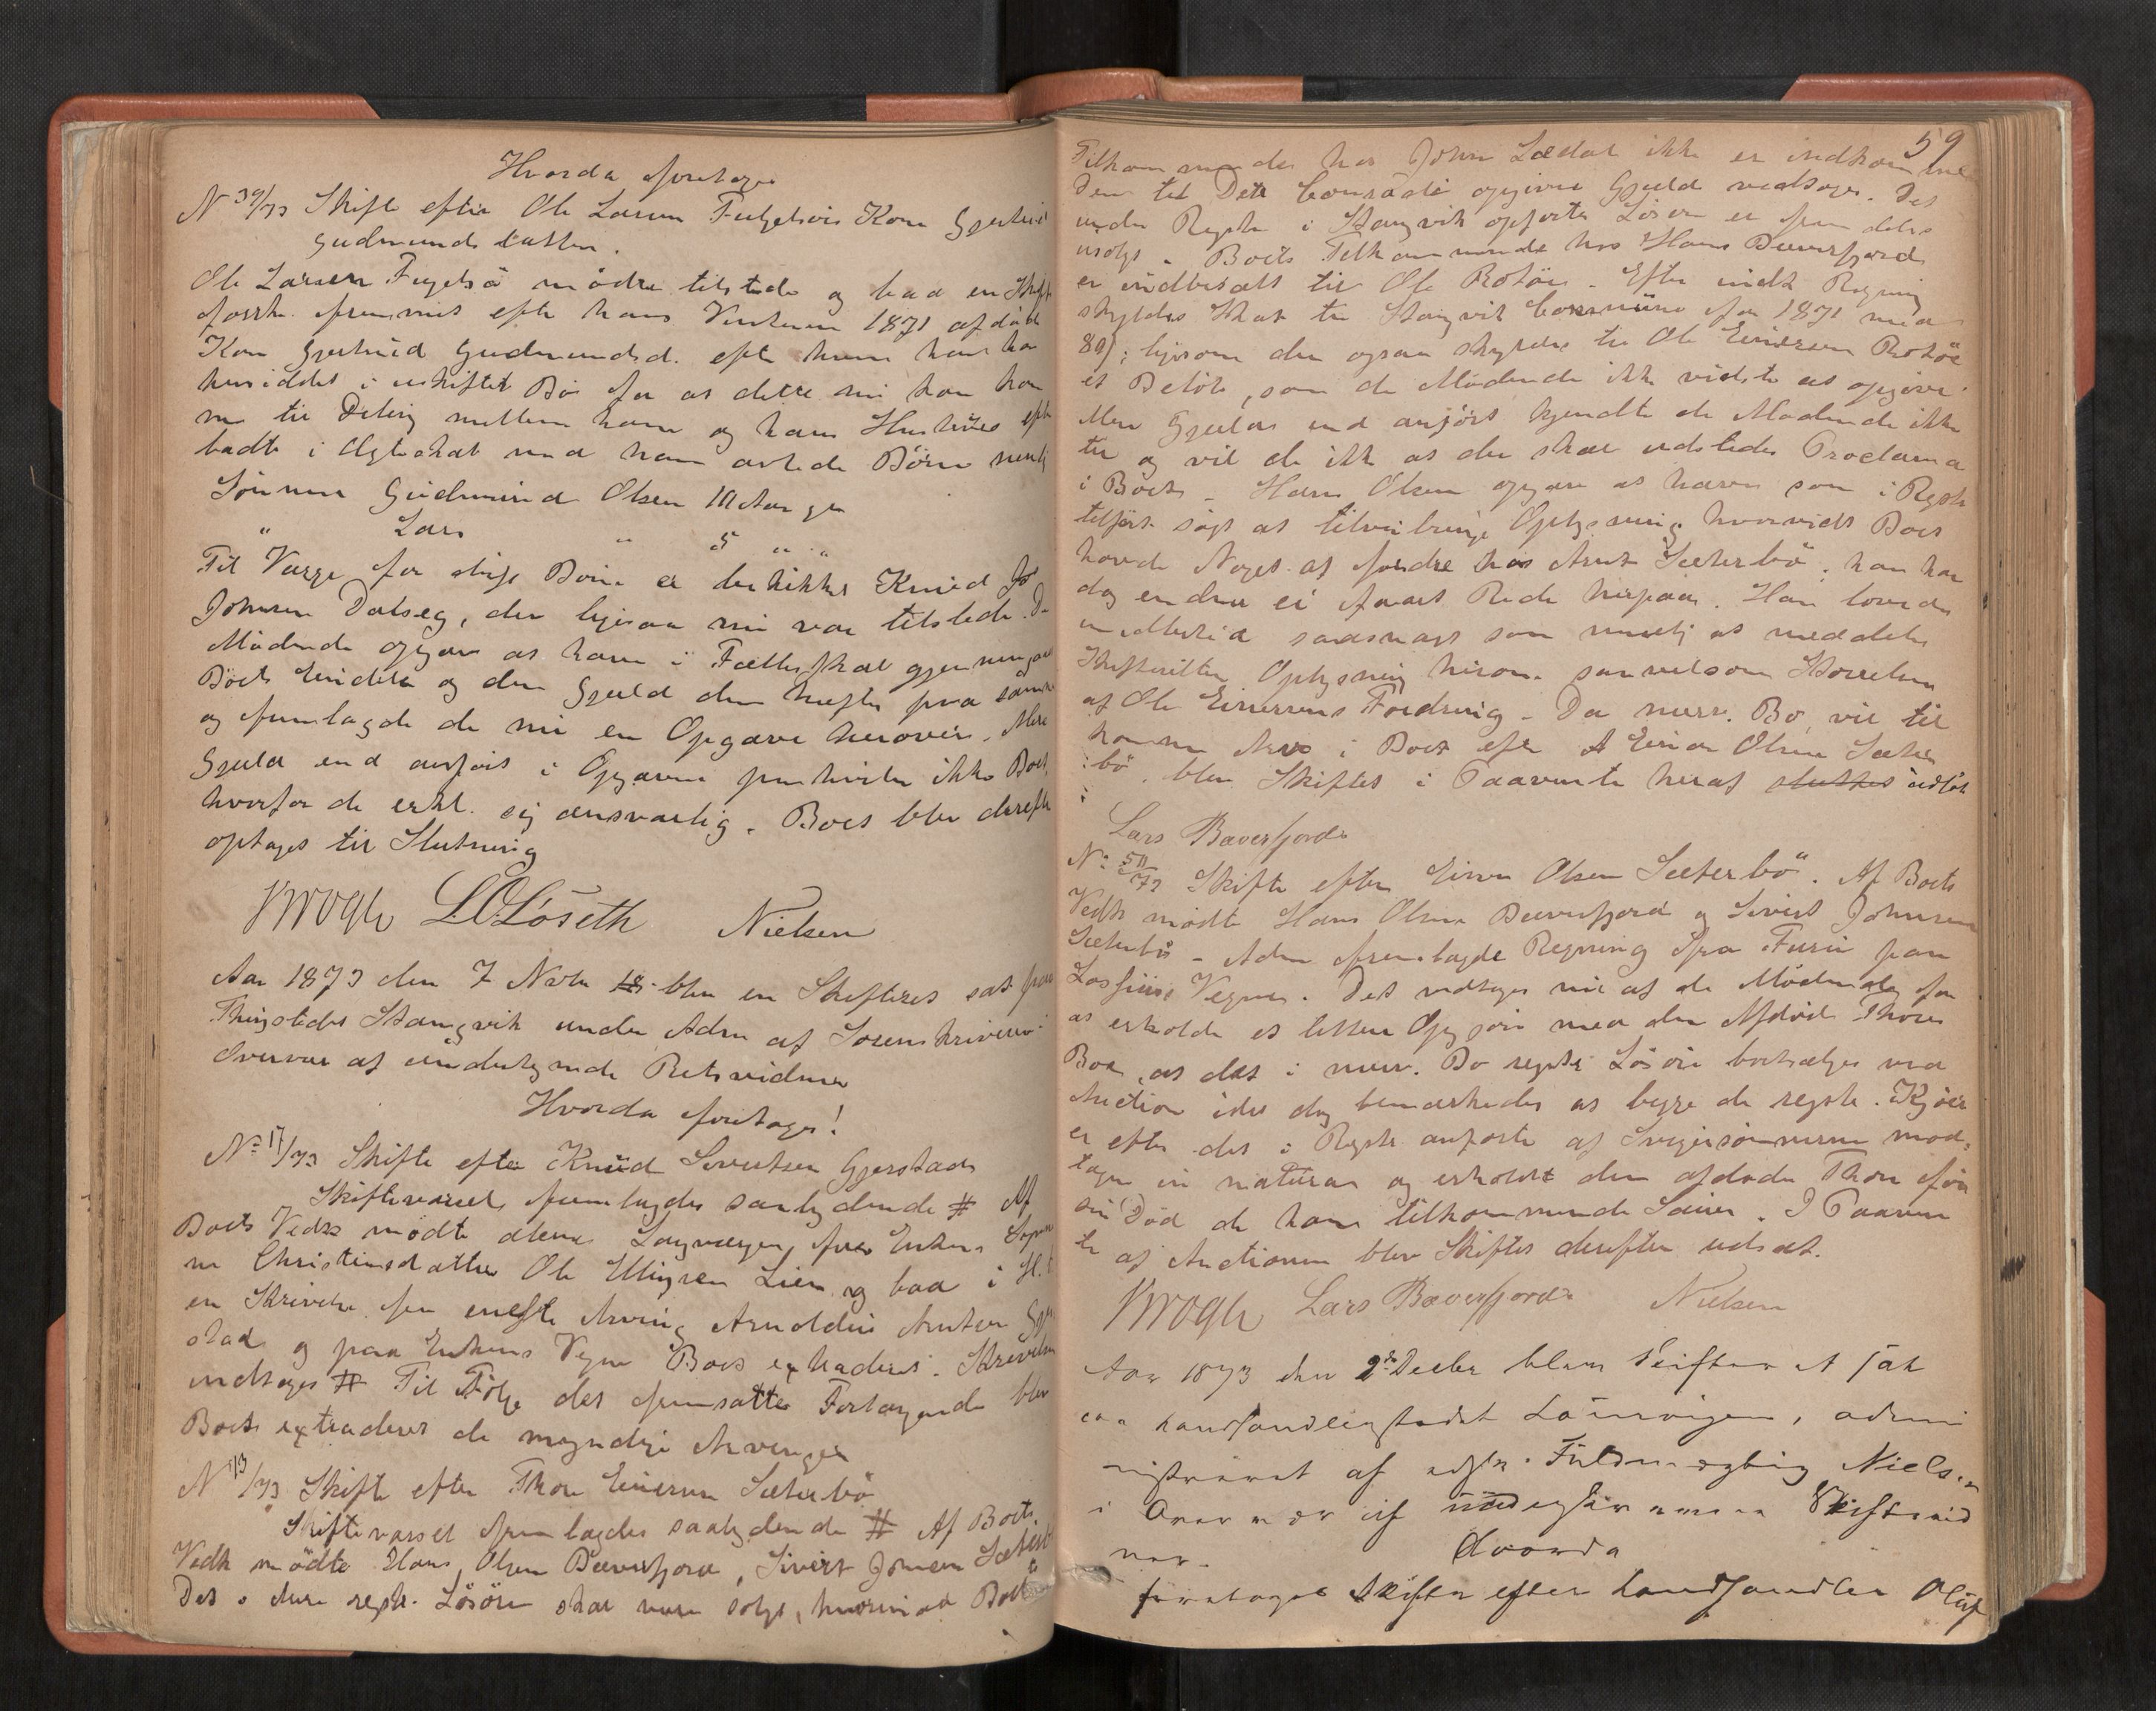 Hvorda foretoges
N 39/73 Skifte efter Ole Larsen Fuglsøis Kone Gjertrud
Gudmundsdatter.
Ole Larsen Fuglsø mødte tilstede og bad en Skift
forrh. fremmet efter hans Vinteren 1871 afdøde
Kone Gjertrud Gudmundsd. efter hvem han har
hensiddet i uskiftet Bo for at dette nu kan kom
me til Deling mellem ham og hans Hustrues efter
ladte i Ægteskab med ham avlede Børn nemlig
Sønnen Gudmund Olsen 10 Aar gl
" Lars " 5 " "
Til Værge for disse Børn er beskikket Knud Jo
Johnsen Dalseg, der ligesaa nu var tilstede. De
Mødende opgav at have i Fællesskab gjennemgaaet
Boets Eiendele og den Gjæld der hefter paa samme
og fremlagde de nu en Opgave herover. Mere
Gjæld end anført i Opgaven paahviler ikke Boet,
hvorfor de erkl. sig ansvarlig. Boet blev derefter
optaget til Slutning
Krogh L.O.Løseth Nielsen
Aar 1873 den 7 Novbr blev en Skifteret sat paa
Thingstedet Stangvik under Adm af Sorenskriveren i
Overvær af undertegnede Retsvidner
Hvorda foretoges!
No 17/73 Skifte efter Knud Sivertsen Gjerstad
Skiftevarsel fremlagdes saalydende # Af
Boets Vedk mødte alene Laugværgen for Enken
Christensdatter Ole Ellingsen Lien og bad i H. t.
en Skrivelse fra eneste Arving Arnoldus Knutsen Gjer
stad og paa Enkens Vegne Boet extraderet. Skrivelsen
indtages # Til Følge det fremsatte Forlangende blev
Boet extraderet de myndige Arvinger
N 13/73 Skifte efter Thore Einersen Sæterbø
Skiftevarsel fremlagdes saalydende # Af Boets
Vedk mødte Hans Olsen Bæverfjord, Sivert Johnsen Sæterbø
Det i dette regstr. Løsøre skal være solgt, hvorimod Boets
59
Tilkommende hos John Lædal ikke er indkommet
Den til opgivne Gjæld vedtoges. Det
under Regstr i Stangvik opførte Løsøre er fremdeles
usolgt. Boets Tilkommende hos Hans Bæverfjord
er indbetalt til Ole Rotøe. Efter indk Regning
skyldes Skat til Stangvik Commune for 1871 med
ligesom der ogsaa skyldes til Ole Einersen Rotøe
et Beløb, som de Mødende ikke vidste at opgive.
Mere Gjæld end anført kjendte de Mødende ikke
til og vil de ikke at der skal udstedes Proclama
i Boet. Hans Olsen opgav at have som i Regstr
tilført søgt at tilveiebringe Oplysning hvorvidt Boet
havde Noget at fordre hos Arnt Sæterbø, han har
dog endnu ei faaet Rede herpaa. Han lovede
imidlertid saasnart som muelig at meddele
Skifteretten Oplysning herom saavelsom Størrelsen
af Ole Einersens Fordring. Da nærv. Bo vil til
komme Arv i Boet efter Einer Olsen Sæter
bø, blev Skiftet i Paavente heraf sluttet udsat
Lars Bæverfjord
No 50/73 Skifte efter Einer Olsen Sæterbø. Af Boets
Vedk mødte Hans Olsen Bæverfjord og Sivert Johnsen
Sæterbø. Adm fremlagde Regning fra Furu paa
Lossius Vegne. Det vedtoges nu af de Mødende for
at erholde et lettere Opgjør med den Afdøde Thores
Boe, at det i nærv. Bo regstr Løsøre bortsælges ved
Auction idet dog bemærkedes at begge de regstr. Kjøer
er efter det i Regstr anførte af Svigersønnerne mod-
tagne in natura og erholdt den afdøde Thore før
sin Død de ham tilkommende Sauer. I Paaven
te af Auctionen blev Skiftet derefter udsat.
Krogh Lars Bæverfjord Nielsen
Aar 1873 den 2de Decbr blev Skifteret sat
paa Landhandlerstedet admi
nistreret af edsv. Fuldmægtig Nielsen
i Overvær af undertegnede Skiftevid
ner.
Hvorda
foretoges Skiftet efter Landhandler Oluf